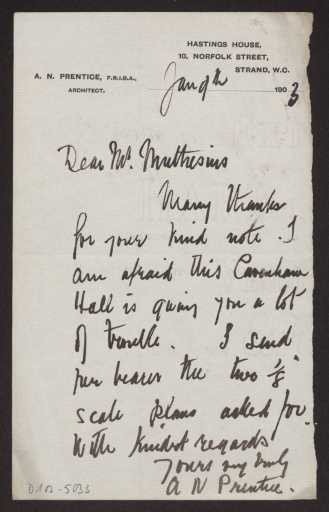 HASTINGS HOUSE,
10, NORFOLK STREET,
STRAND, W.C.
A. N. PRENTICE, F.R.I.B.A.,
ARCHITECT.
Jan 9th 1903
Dear Mr. Muthesius
Many thanks
for your kind note. I
am afraid this Cavenham
Hall is giving you a lot
of trouble. I send
per bearer the two 1/8"
scale plans asked for.
With kindest regards
Yours very truly
A N Prentice.
D102-5033